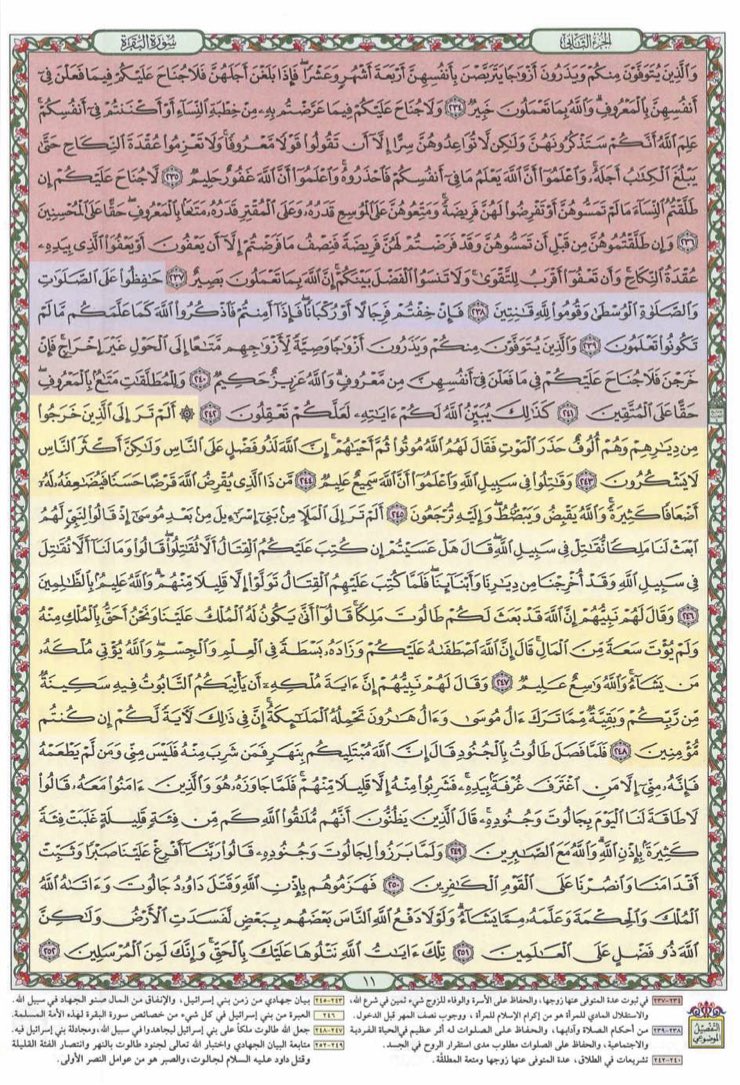 الجزء الثاني
سورة البقرة
وَالَّذِينَ يُتَوَفَّوْنَ مِنكُمْ وَيَذَرُونَ أَزْوَاجًا يَتَرَبَّصْنَ بِأَنفُسِهِنَّ أَرْبَعَةَ أَشْهُرٍ وَعَشْرًا ۖ فَإِذَا بَلَغْنَ أَجَلَهُنَّ فَلَا جُنَاحَ عَلَيْكُمْ فِيمَا فَعَلْنَ فِي
أَنفُسِهِنَّ بِالْمَعْرُوفِ ۗ وَاللَّهُ بِمَا تَعْمَلُونَ خَبِيرٌ ٢٣٤ وَلَا جُنَاحَ عَلَيْكُمْ فِيمَا عَرَّضْتُم بِهِ مِنْ خِطْبَةِ النِّسَاءِ أَوْ أَكْنَنتُمْ فِي أَنفُسِكُمْ ۚ
عَلِمَ اللَّهُ أَنَّكُمْ سَتَذْكُرُونَهُنَّ وَلَٰكِن لَّا تُوَاعِدُوهُنَّ سِرًّا إِلَّا أَن تَقُولُوا قَوْلًا مَّعْرُوفًا ۚ وَلَا تَعْزِمُوا عُقْدَةَ النِّكَاحِ حَتَّىٰ
يَبْلُغَ الْكِتَابُ أَجَلَهُ ۚ وَاعْلَمُوا أَنَّ اللَّهَ يَعْلَمُ مَا فِي أَنفُسِكُمْ فَاحْذَرُوهُ ۚ وَاعْلَمُوا أَنَّ اللَّهَ غَفُورٌ حَلِيمٌ ٢٣٥ لَّا جُنَاحَ عَلَيْكُمْ إِن
طَلَّقْتُمُ النِّسَاءَ مَا لَمْ تَمَسُّوهُنَّ أَوْ تَفْرِضُوا لَهُنَّ فَرِيضَةً ۚ وَمَتِّعُوهُنَّ عَلَى الْمُوسِعِ قَدَرُهُ وَعَلَى الْمُقْتِرِ قَدَرُهُ مَتَاعًا بِالْمَعْرُوفِ ۖ حَقًّا عَلَى الْمُحْسِنِينَ
٢٣٦ وَإِن طَلَّقْتُمُوهُنَّ مِن قَبْلِ أَن تَمَسُّوهُنَّ وَقَدْ فَرَضْتُمْ لَهُنَّ فَرِيضَةً فَنِصْفُ مَا فَرَضْتُمْ إِلَّا أَن يَعْفُونَ أَوْ يَعْفُوَ الَّذِي بِيَدِهِ
عُقْدَةُ النِّكَاحِ ۚ وَأَن تَعْفُوا أَقْرَبُ لِلتَّقْوَىٰ ۚ وَلَا تَنسَوُا الْفَضْلَ بَيْنَكُمْ ۚ إِنَّ اللَّهَ بِمَا تَعْمَلُونَ بَصِيرٌ ٢٣٧ حَافِظُوا عَلَى الصَّلَوَاتِ
وَالصَّلَاةِ الْوُسْطَىٰ وَقُومُوا لِلَّهِ قَانِتِينَ ٢٣٨ فَإِنْ خِفْتُمْ فَرِجَالًا أَوْ رُكْبَانًا ۖ فَإِذَا أَمِنتُمْ فَاذْكُرُوا اللَّهَ كَمَا عَلَّمَكُم مَّا لَمْ
تَكُونُوا تَعْلَمُونَ ٢٣٩ وَالَّذِينَ يُتَوَفَّوْنَ مِنكُمْ وَيَذَرُونَ أَزْوَاجًا وَصِيَّةً لِّأَزْوَاجِهِم مَّتَاعًا إِلَى الْحَوْلِ غَيْرَ إِخْرَاجٍ ۚ فَإِنْ
خَرَجْنَ فَلَا جُنَاحَ عَلَيْكُمْ فِي مَا فَعَلْنَ فِي أَنفُسِهِنَّ مِن مَّعْرُوفٍ ۗ وَاللَّهُ عَزِيزٌ حَكِيمٌ ٢٤٠ وَلِلْمُطَلَّقَاتِ مَتَاعٌ بِالْمَعْرُوفِ ۖ
حَقًّا عَلَى الْمُتَّقِينَ ٢٤١ كَذَٰلِكَ يُبَيِّنُ اللَّهُ لَكُمْ آيَاتِهِ لَعَلَّكُمْ تَعْقِلُونَ ٢٤٢ ۞ أَلَمْ تَرَ إِلَى الَّذِينَ خَرَجُوا
مِن دِيَارِهِمْ وَهُمْ أُلُوفٌ حَذَرَ الْمَوْتِ فَقَالَ لَهُمُ اللَّهُ مُوتُوا ثُمَّ أَحْيَاهُمْ ۚ إِنَّ اللَّهَ لَذُو فَضْلٍ عَلَى النَّاسِ وَلَٰكِنَّ أَكْثَرَ النَّاسِ
لَا يَشْكُرُونَ ٢٤٣ وَقَاتِلُوا فِي سَبِيلِ اللَّهِ وَاعْلَمُوا أَنَّ اللَّهَ سَمِيعٌ عَلِيمٌ ٢٤٤ مَّن ذَا الَّذِي يُقْرِضُ اللَّهَ قَرْضًا حَسَنًا فَيُضَاعِفَهُ لَهُ
أَضْعَافًا كَثِيرَةً ۚ وَاللَّهُ يَقْبِضُ وَيَبْسُطُ وَإِلَيْهِ تُرْجَعُونَ ٢٤٥ أَلَمْ تَرَ إِلَى الْمَلَإِ مِن بَنِي إِسْرَائِيلَ مِن بَعْدِ مُوسَىٰ إِذْ قَالُوا لِنَبِيٍّ لَّهُمُ
ابْعَثْ لَنَا مَلِكًا نُّقَاتِلْ فِي سَبِيلِ اللَّهِ ۖ قَالَ هَلْ عَسَيْتُمْ إِن كُتِبَ عَلَيْكُمُ الْقِتَالُ أَلَّا تُقَاتِلُوا ۖ قَالُوا وَمَا لَنَا أَلَّا نُقَاتِلَ
فِي سَبِيلِ اللَّهِ وَقَدْ أُخْرِجْنَا مِن دِيَارِنَا وَأَبْنَائِنَا ۖ فَلَمَّا كُتِبَ عَلَيْهِمُ الْقِتَالُ تَوَلَّوْا إِلَّا قَلِيلًا مِّنْهُمْ ۗ وَاللَّهُ عَلِيمٌ بِالظَّالِمِينَ
٢٤٦ وَقَالَ لَهُمْ نَبِيُّهُمْ إِنَّ اللَّهَ قَدْ بَعَثَ لَكُمْ طَالُوتَ مَلِكًا ۚ قَالُوا أَنَّىٰ يَكُونُ لَهُ الْمُلْكُ عَلَيْنَا وَنَحْنُ أَحَقُّ بِالْمُلْكِ مِنْهُ
وَلَمْ يُؤْتَ سَعَةً مِّنَ الْمَالِ ۚ قَالَ إِنَّ اللَّهَ اصْطَفَاهُ عَلَيْكُمْ وَزَادَهُ بَسْطَةً فِي الْعِلْمِ وَالْجِسْمِ ۖ وَاللَّهُ يُؤْتِي مُلْكَهُ
مَن يَشَاءُ ۚ وَاللَّهُ وَاسِعٌ عَلِيمٌ ٢٤٧ وَقَالَ لَهُمْ نَبِيُّهُمْ إِنَّ آيَةَ مُلْكِهِ أَن يَأْتِيَكُمُ التَّابُوتُ فِيهِ سَكِينَةٌ
مِّن رَّبِّكُمْ وَبَقِيَّةٌ مِّمَّا تَرَكَ آلُ مُوسَىٰ وَآلُ هَارُونَ تَحْمِلُهُ الْمَلَائِكَةُ ۚ إِنَّ فِي ذَٰلِكَ لَآيَةً لَّكُمْ إِن كُنتُم
مُّؤْمِنِينَ ٢٤٨ فَلَمَّا فَصَلَ طَالُوتُ بِالْجُنُودِ قَالَ إِنَّ اللَّهَ مُبْتَلِيكُم بِنَهَرٍ فَمَن شَرِبَ مِنْهُ فَلَيْسَ مِنِّي وَمَن لَّمْ يَطْعَمْهُ
فَإِنَّهُ مِنِّي إِلَّا مَنِ اغْتَرَفَ غُرْفَةً بِيَدِهِ ۚ فَشَرِبُوا مِنْهُ إِلَّا قَلِيلًا مِّنْهُمْ ۚ فَلَمَّا جَاوَزَهُ هُوَ وَالَّذِينَ آمَنُوا مَعَهُ قَالُوا
لَا طَاقَةَ لَنَا الْيَوْمَ بِجَالُوتَ وَجُنُودِهِ ۚ قَالَ الَّذِينَ يَظُنُّونَ أَنَّهُم مُّلَاقُو اللَّهِ كَم مِّن فِئَةٍ قَلِيلَةٍ غَلَبَتْ فِئَةً
كَثِيرَةً بِإِذْنِ اللَّهِ ۗ وَاللَّهُ مَعَ الصَّابِرِينَ ٢٤٩ وَلَمَّا بَرَزُوا لِجَالُوتَ وَجُنُودِهِ قَالُوا رَبَّنَا أَفْرِغْ عَلَيْنَا صَبْرًا وَثَبِّتْ
أَقْدَامَنَا وَانصُرْنَا عَلَى الْقَوْمِ الْكَافِرِينَ ٢٥٠ فَهَزَمُوهُم بِإِذْنِ اللَّهِ وَقَتَلَ دَاوُودُ جَالُوتَ وَآتَاهُ اللَّهُ
الْمُلْكَ وَالْحِكْمَةَ وَعَلَّمَهُ مِمَّا يَشَاءُ ۗ وَلَوْلَا دَفْعُ اللَّهِ النَّاسَ بَعْضَهُم بِبَعْضٍ لَّفَسَدَتِ الْأَرْضُ وَلَٰكِنَّ
اللَّهَ ذُو فَضْلٍ عَلَى الْعَالَمِينَ ٢٥١ تِلْكَ آيَاتُ اللَّهِ نَتْلُوهَا عَلَيْكَ بِالْحَقِّ ۚ وَإِنَّكَ لَمِنَ الْمُرْسَلِينَ ٢٥٢
١١
التفصيل الموضوعي
٢٣٤-٢٣٧ في ثبوت عدة المتوفى عنها زوجها، والحفاظ على الأسرة والوفاء للزوج شيء ثمين في شرع الله،
والاستقلال المادي للمرأة هو من إكرام الإسلام للمرأة ، ووجوب نصف المهر قبل الدخول.
٢٣٨-٢٣٩ من أحكام الصلاة وآدابها، والحفاظ على الصلوات له أثر عظيم في الحياة الفردية
والاجتماعية، والحفاظ على الصلوات مطلوب مدى استقرار الروح في الجسد.
٢٤٠-٢٤٢ تشريعات في الطلاق، عدة المتوفى عنها زوجها ومتعة المطلقة.
٢٤٣-٢٤٥ بيان جهادي من زمن بني إسرائيل، والإنفاق من المال صنو الجهاد في سبيل الله.
٢٤٦ العبرة من بني إسرائيل في كل شيء من خصائص سورة البقرة لهذه الأمة المسلمة.
٢٤٧-٢٤٨ جعل الله طالوت ملكاً على بني إسرائيل ليجاهدوا في سبيل الله، ومجادلة بني إسرائيل فيه.
٢٤٩-٢٥٢ متابعة البيان الجهادي واختبار الله تعالى لجنود طالوت بالنهر وانتصار الفئة القليلة
وقتل داود عليه السلام لجالوت، والصبر هو من عوامل النصر الأولى.